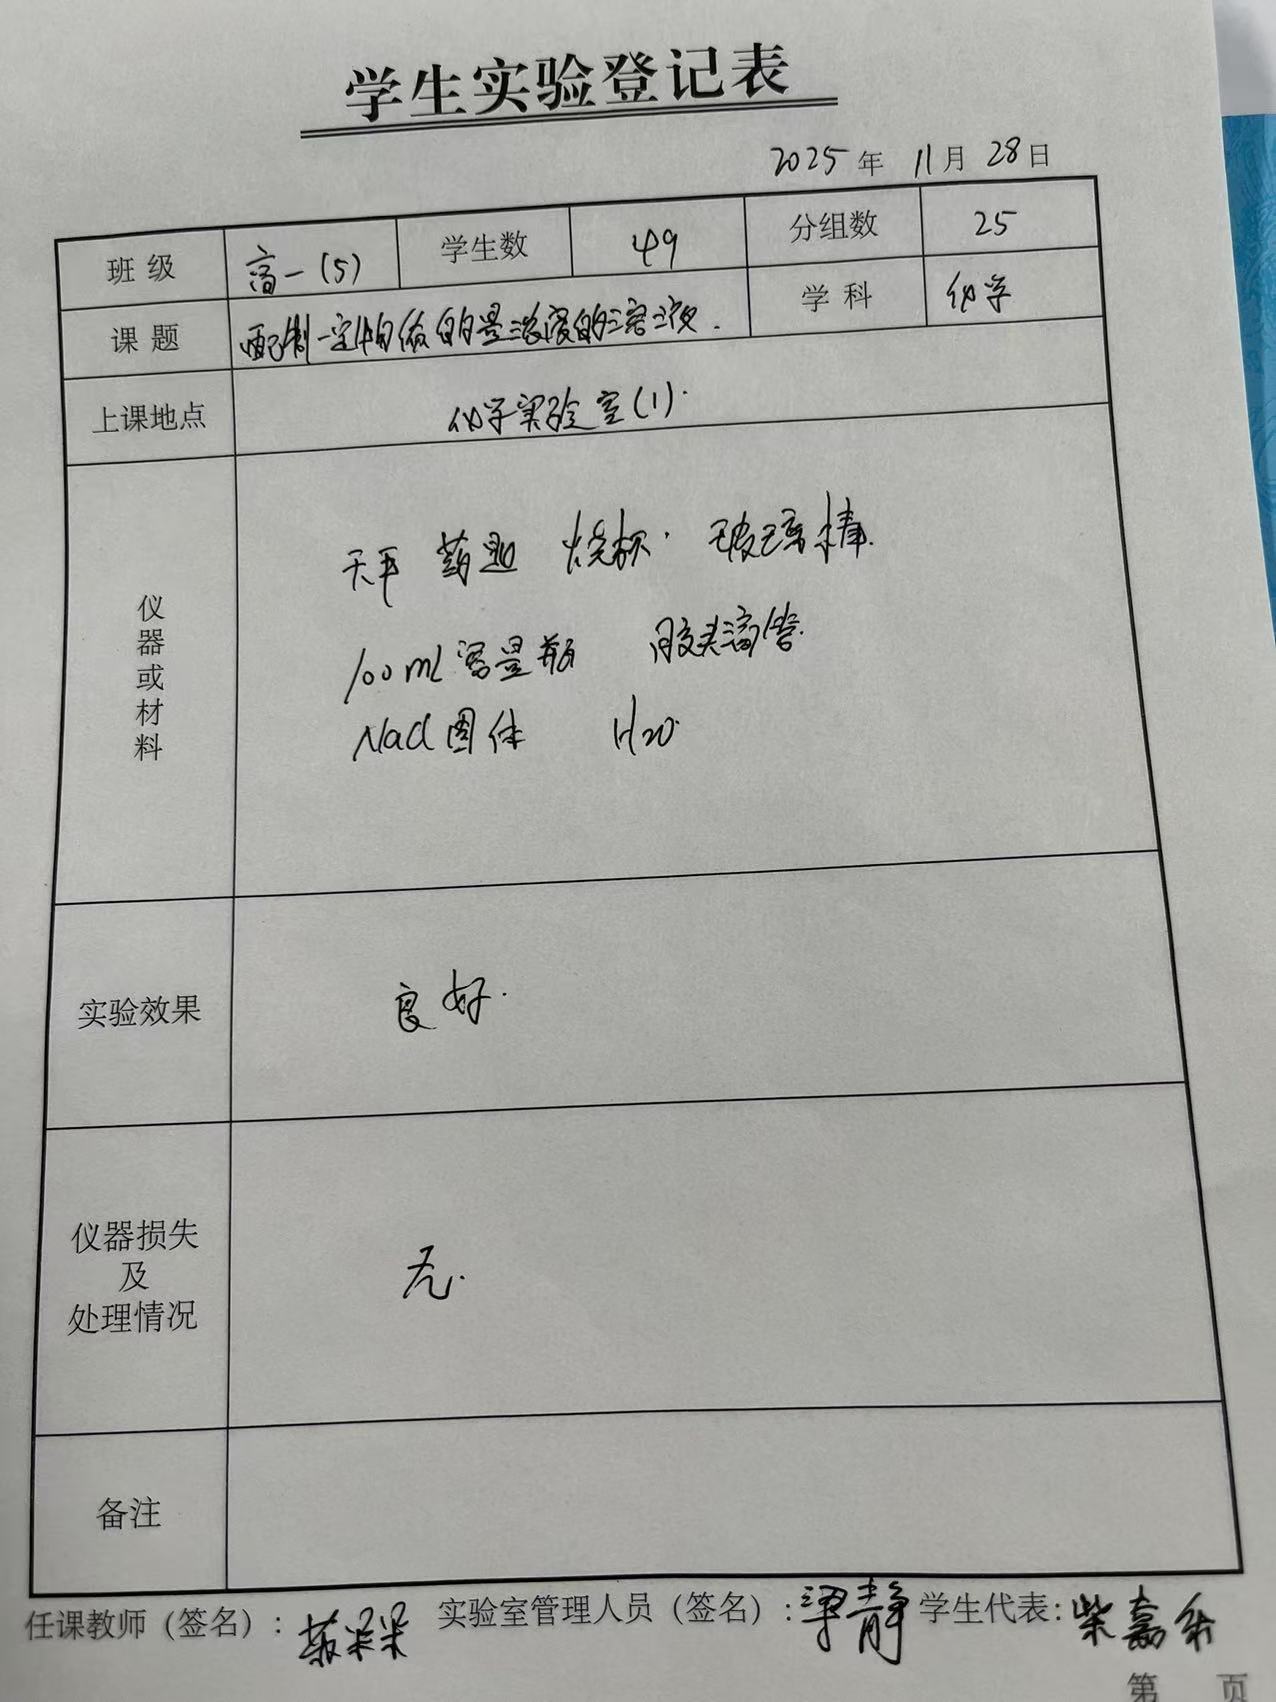 学生实验登记表
2025年 11月 28日
班级 高一(5) 学生数 49 分组数 25
课题 配制一定物质的量浓度的溶液. 学科 化学
上课地点 化学实验室(1).
仪器或材料
天平 药匙 烧杯. 玻璃棒.
100mL容量瓶 胶头滴管.
NaCl固体 H2O.
实验效果 良好.
仪器损失
及
处理情况
无.
备注
任课教师（签名）: 实验室管理人员（签名）: 梁静 学生代表: 柴嘉
第 页